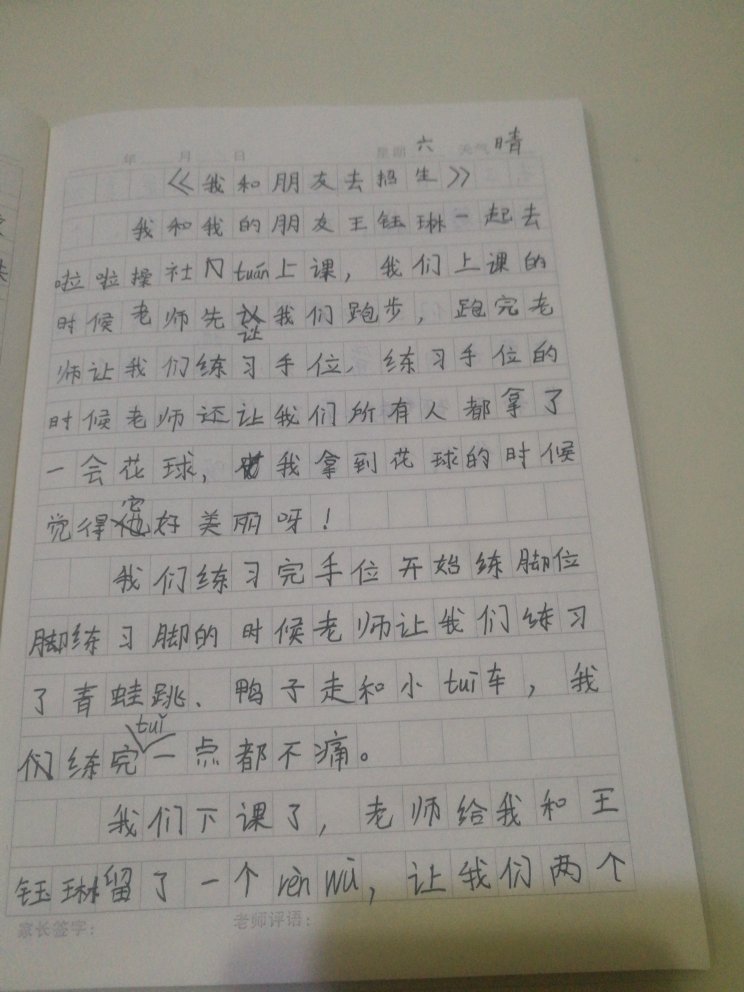 年 月 日 星期 六 天气 晴
《我和朋友去招生》
我和我的朋友王钰琳一起去
啦啦操社门tuán上课，我们上课的
时候老师先让我们跑步，跑完老
师让我们练习手位，练习手位的
时候老师还让我们所有人都拿了
一会花球，我拿到花球的时候
觉得它好美丽呀！
我们练习完手位开始练脚位
脚练习脚的时候老师让我们练习
了青蛙跳、鸭子走和小tuī车，我
们练完tuǐ一点都不痛。
我们下课了，老师给我和王
钰琳留了一个rèn wù，让我们两个
家长签字： 老师评语：